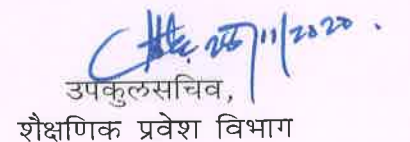 25/11/2020.
उपकुलसचिव,
शैक्षणिक प्रवेश विभाग